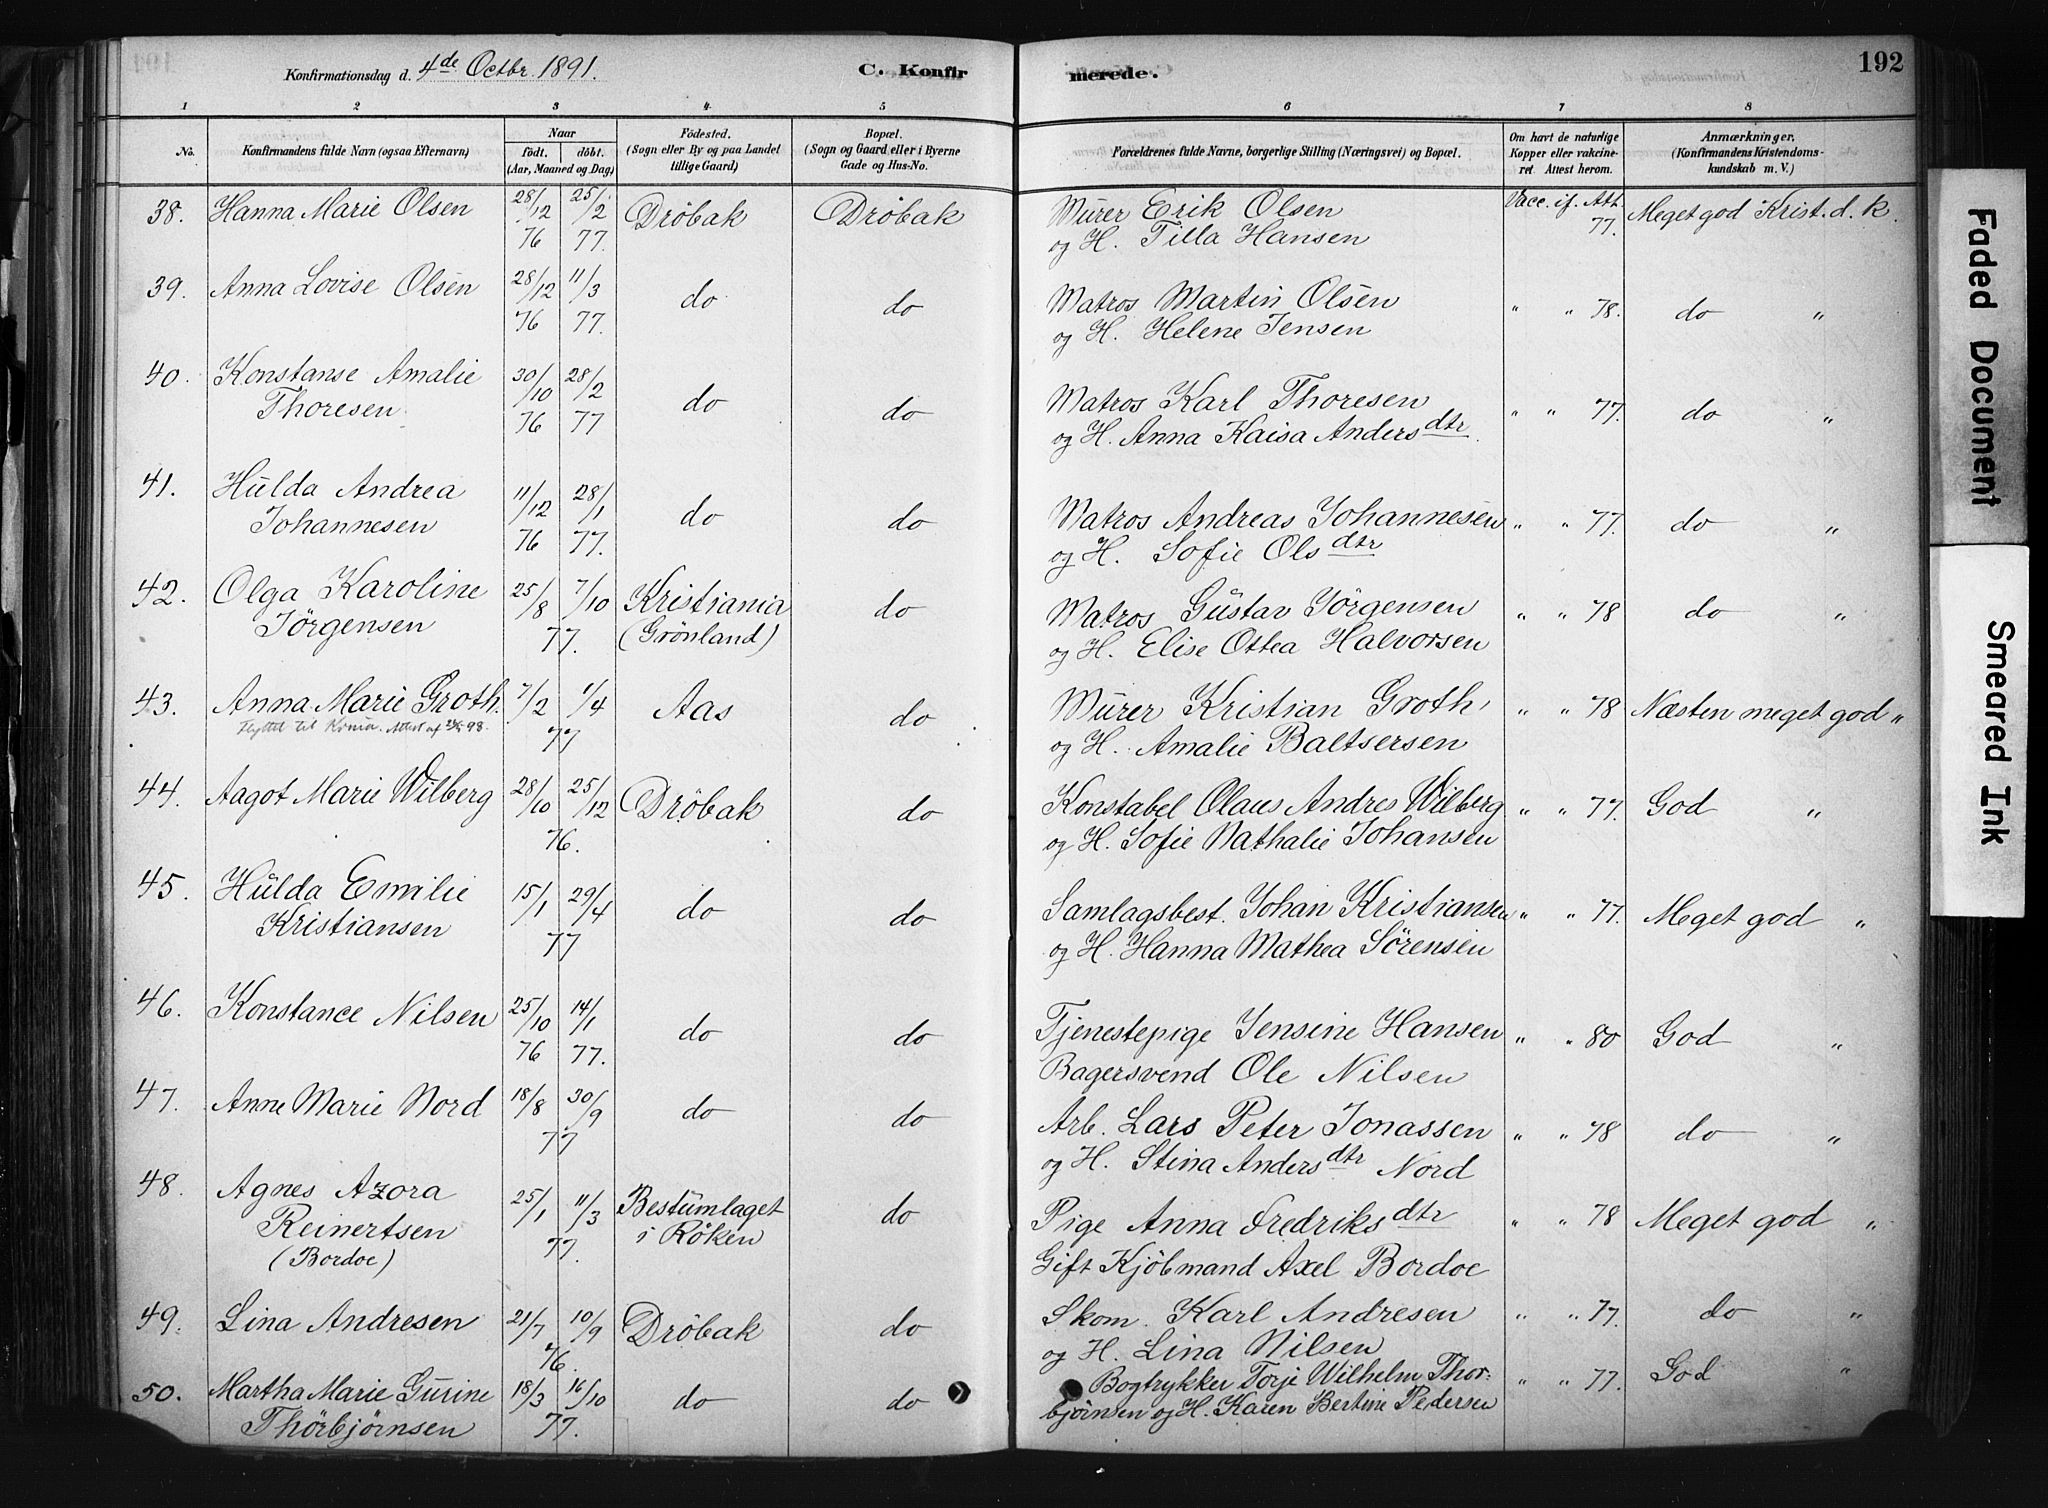 Konfirmationsdag d. 4de Octbr. 1891. C. Konfirmerede. 192
1 2 3 4 5 6 7 8
No. Konfirmandens fulde Navn (ogsaa Efternavn) Naar födt. döbt. (Aar, Maaned og Dag) Födested. (Sogn eller By og paa Landet tillige Gaard) Bopæl. (Sogn og Gaard, eller i Byerne Gade og Hus-No. Forældrenes fulde Navne, borgerlige Stilling (Næringsvei) og Bopæl. Om havt de naturlige Kopper eller vakcineret. Attest herom. Anmærkninger. (Konfirmandens Kristendomskundskab m. V.)
38. Hanna Marie Olsen 28/12 76 25/2 77. Dröbak Dröbak Murer Erik Olsen Vacc. if. Att. 77. Meget god Krist.d.k.
og H. Tilla Hansen
39. Anna Lovise Olsen 28/12 76 11/3 77. do do Matros Martin Olsen " " 78. do "
og H. Helene Jensen
40. Konstanse Amalie 30/10 76 28/2 77 do do Matros Karl Thoresen " " 77. do "
Thoresen. og H. Anna Kaisa Andersdtr.
41. Hulda Andrea 11/12 76 28/1 77. do do Matros Andreas Johannesen " " 77. do "
Johannesen og H. Sofie Olsdtr
42. Olga Karoline 25/8 7/10 77. Kristiania do Matros Gustav Jörgensen " " 78 do "
Jörgensen (Grönland) og H. Elise Ottea Halvorsen
43. Anna Marie Groth. 7/2 1/4 77 Aas do Murer Kristian Groth, " " 78 Næsten meget god "
Flyttet til Krnia. Attest af 98. og H. Amalie Baltsersen
44. Aagot Marie Wilberg 28/10 25/12 76. Dröbak do Konstabel Olaus Andres Wilberg " " 77. God "
og H. Sofie Nathalie Johansen
45. Hulda Emilie 15/1 29/4 77 do do Samlagsbest. Johan Kristiansen " " 77. Meget god "
Kristiansen og H. Hanna Mathea Sörensen
46. Konstance Nilsen 25/10 76 14/1 77. do do Tjenestepige Jensine Hansen " " 80 God "
Bagersvend Ole Nilsen
47. Anne Marie Nord 18/8 30/9 77 do do Arb. Lars Peter Jonassen " " 78 do "
og H. Stina Andersdtr Nord
48. Agnes Azora 25/1 11/3 77. Bestumlaget do Pige Anna Fredriksdtr " " 78 Meget god "
Reinertsen i Röken Gift Kjöbmand Axel Bordoe
(Bordoe)
49. Lina Andresen 21/7 10/9 76. Dröbak do Skom. Karl Andresen " " 77. do "
og H. Lina Nilsen
50. Martha Marie Gurine 18/3 16/10 77. do do Bogtrykker Torje Wilhelm Thor- " " 77. God "
Thörbjörnsen björnsen og H. Karen Bertine Pedersen
Faded Document
Smeared Ink